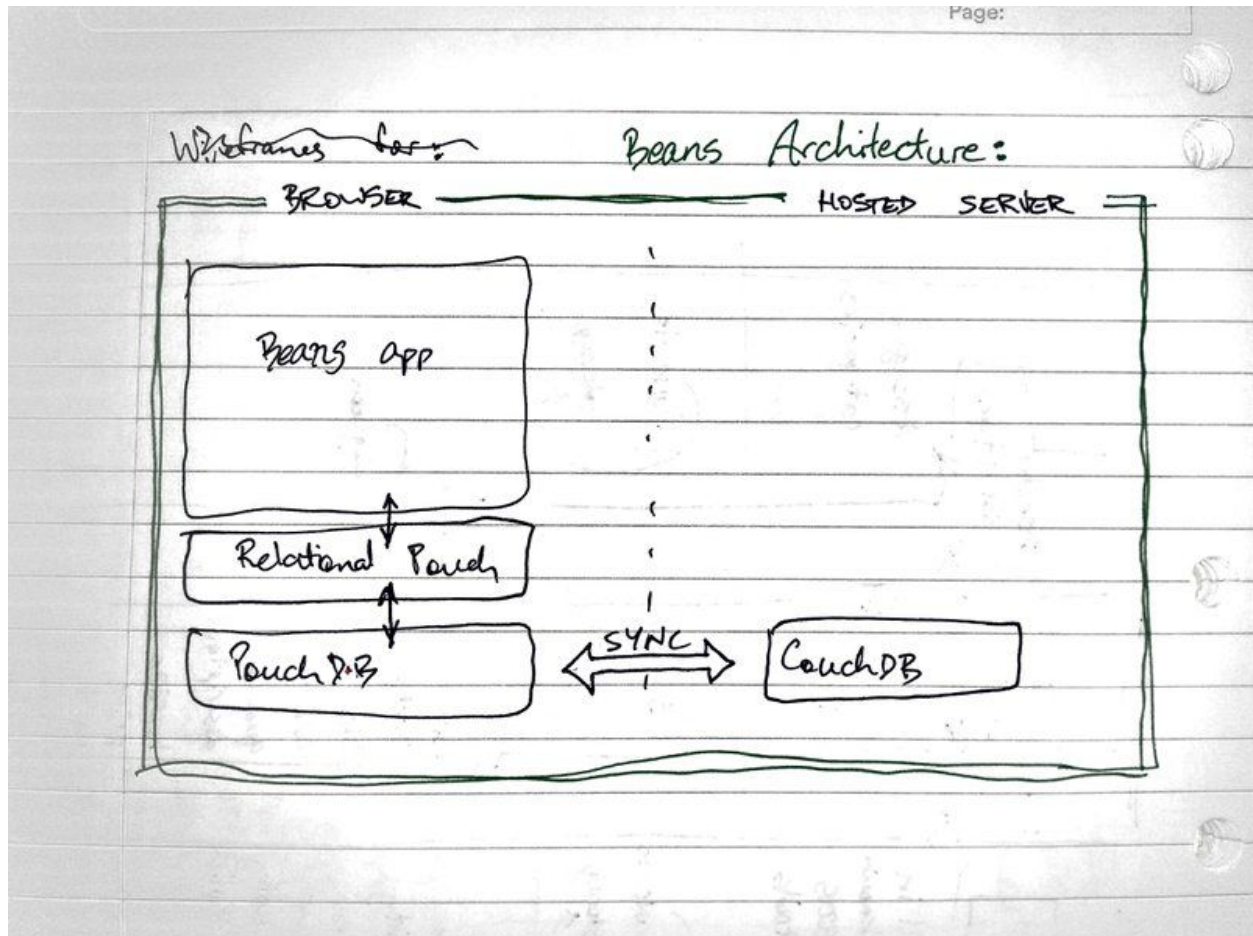 Page:
Wireframes for: Beans Architecture:
BROWSER HOSTED SERVER
Beans app
Relational Pouch
SYNC
PouchDB CouchDB